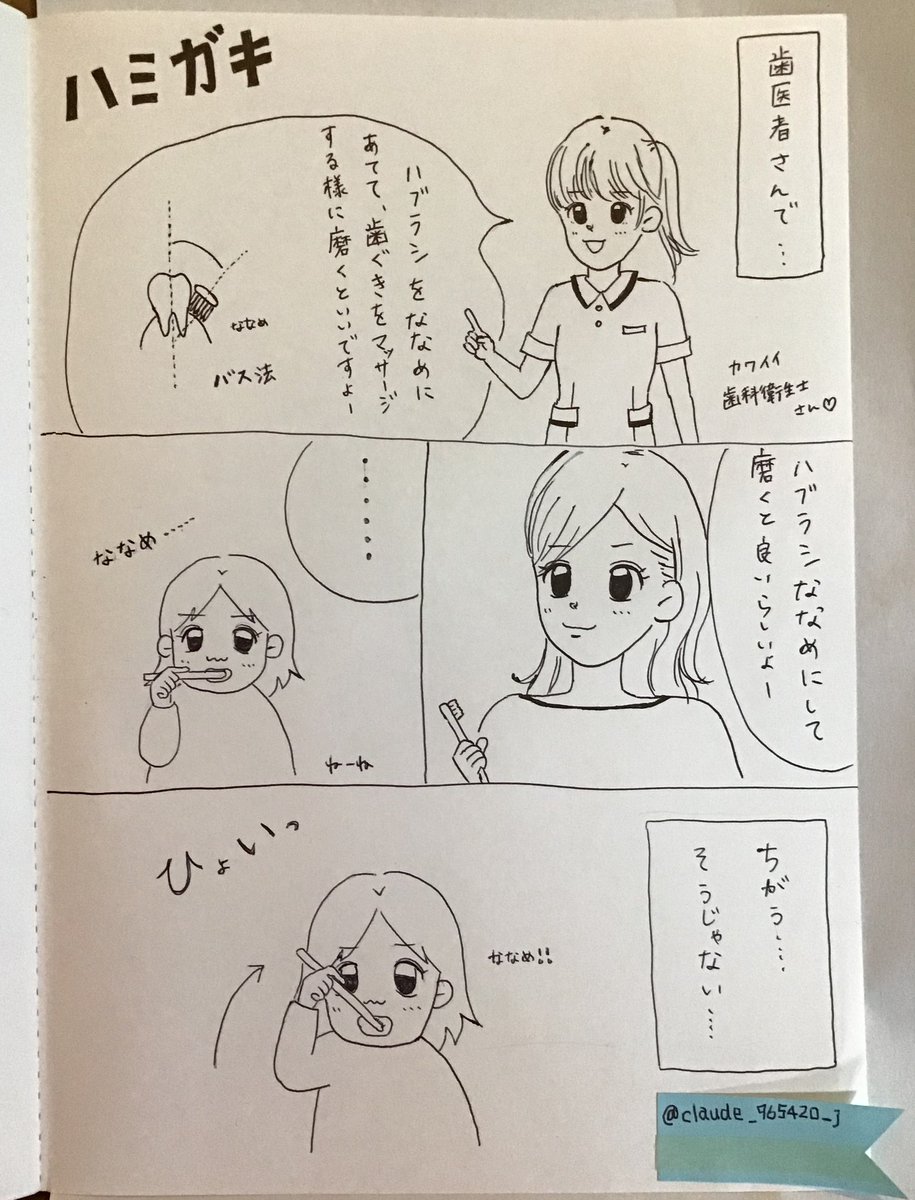 ハミガキ
歯医者さんで…
ハブラシをななめに
あてて、歯ぐきをマッサージ
する様に磨くといいですよー
ななめ
バス法
カワイイ
歯科衛生士
さん♡
ハブラシななめにして
磨くと良いらしいよー
……
ななめ……
ねーね
ちがう……
そうじゃない……
ひょいっ
ななめ!!
@claude_965420_j